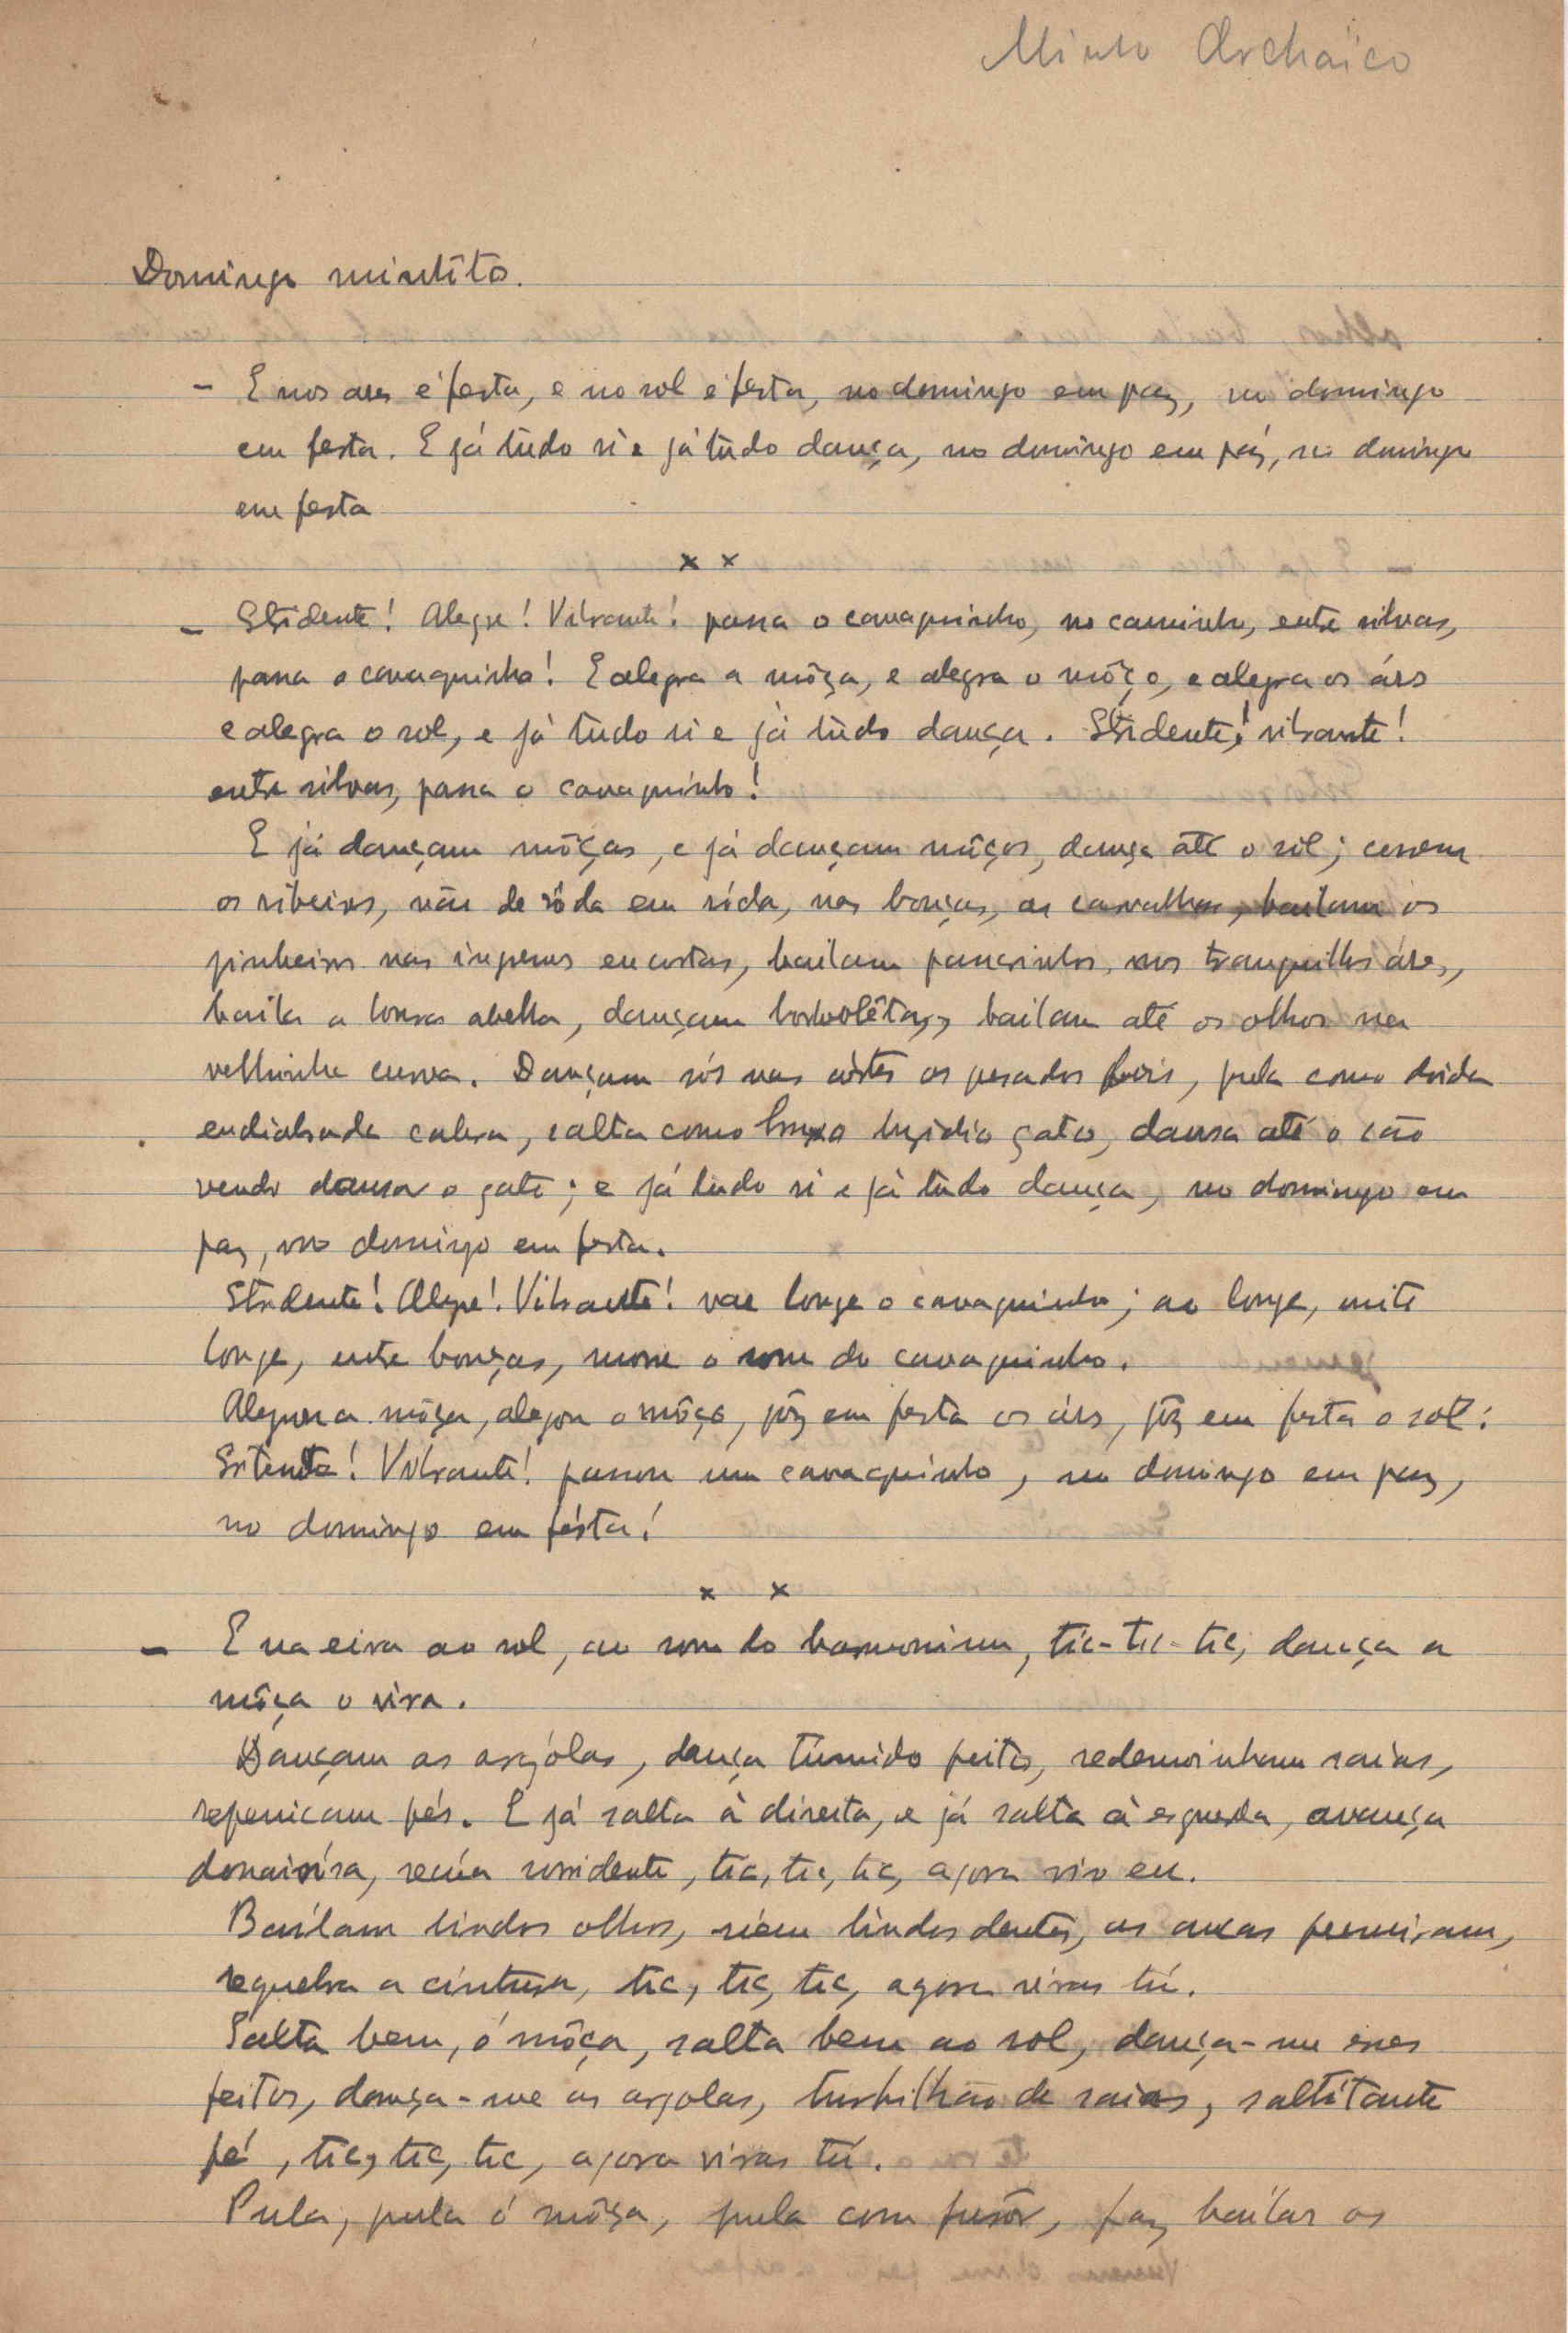 Minho Archaïco
Domingo minhôto.
- E nos ares é festa, e no sol é festa, no domingo em paz, no domingo
em festa. E já tudo ri e já tudo dança, no domingo em páz, no domingo
em festa
x x
- Stridente! Alegre! Vibrante! passa o cavaquinho, no caminho, entre silvas,
passa o cavaquinho! E alegra a môça, e alegra o môço, e alegra os áres
e alegra o sol, e já tudo ri e já tudo dança. Stridente! vibrante!
entre silvas, passa o cavaquinho!
E já dançam môças, e já dançam môços, dança até o sol; correm
os ribeiros, vão de róda em róda, nas bouças, os carvalhos, bailam os
pinheiros nas ingremes encostas, bailam passarinhos, nos tranquillos áres,
baila a loura abelha, dançam borbolêtas, bailam até os olhos na
velhinha curva. Dançam sós nas córtes os pesados bois, pula como doida
endiabrada cabra, salta como bruxo luzidio gato, dansa até o cão
vendo dansar o gato; e já tudo ri e já tudo dança, no domingo em
paz, no domingo em festa.
Stridente! Alegre! Vibrante! vae longe o cavaquinho; ao longe, muito
longe, entre bouças, morre o som do cavaquinho.
Alegrou a môça, alegrou o môço, pôz em festa os áres, pôz em festa o sol:
Vibrante! passou um cavaquinho, no domingo em paz,
no domingo em fésta!
x x
- E na eira ao sol, ao som do harmonium, tic-tic-tic, dança a
môça o vira.
Dançam as argólas, dança túmido peito, redemoinham saias,
repenicam pés. E já salta à direita, e já salta à esquerda, avança
donairósa, recúa sorridente, tic, tic, tic, agora viro eu.
Bailam lindos olhos, riem lindos dentes, as ancas peneiram,
requebra a cintura, tic, tic, tic, agora viras tú.
Salta bem, ó môça, salta bem ao sol, dança-me esses
peitos, dança-me as argolas, turbilhão de saias, saltitante
pé, tic, tic, tic, agora viras tú.
Pula, pula ó môça, pula com furôr, faz bailar os